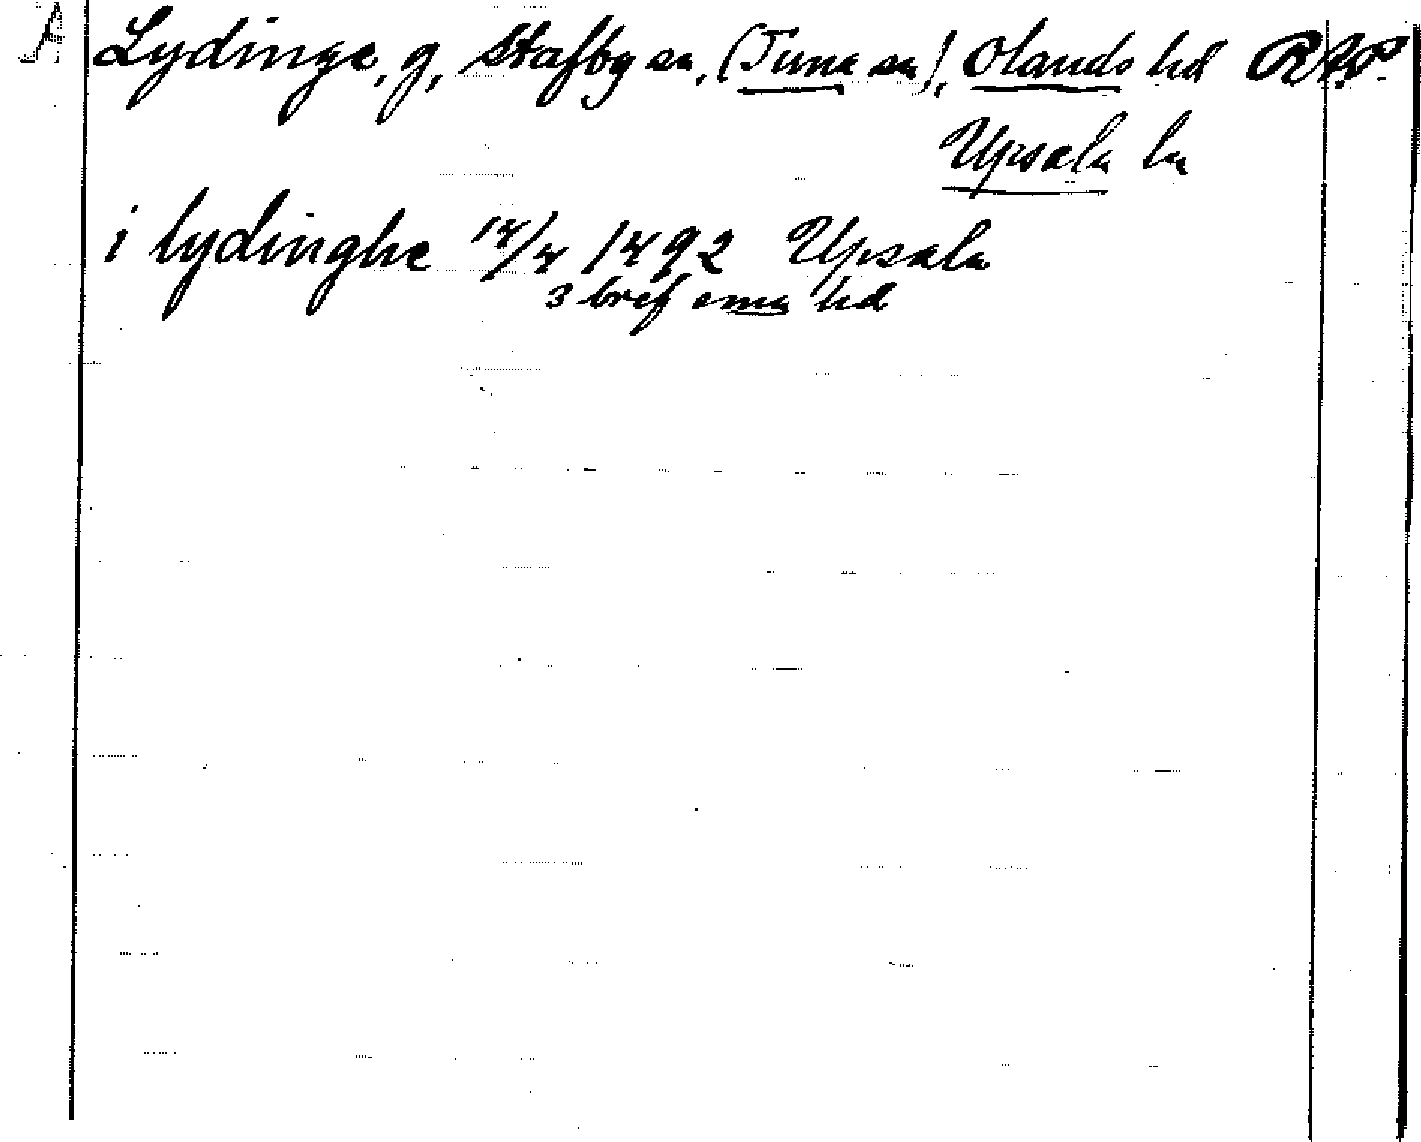 A Lydinge, g, Stafby sn, (Tuna sn), Olands hd RAP.
Upsala ln
i lydinghe 14/4 1492 Upsala
3 bref sma hd